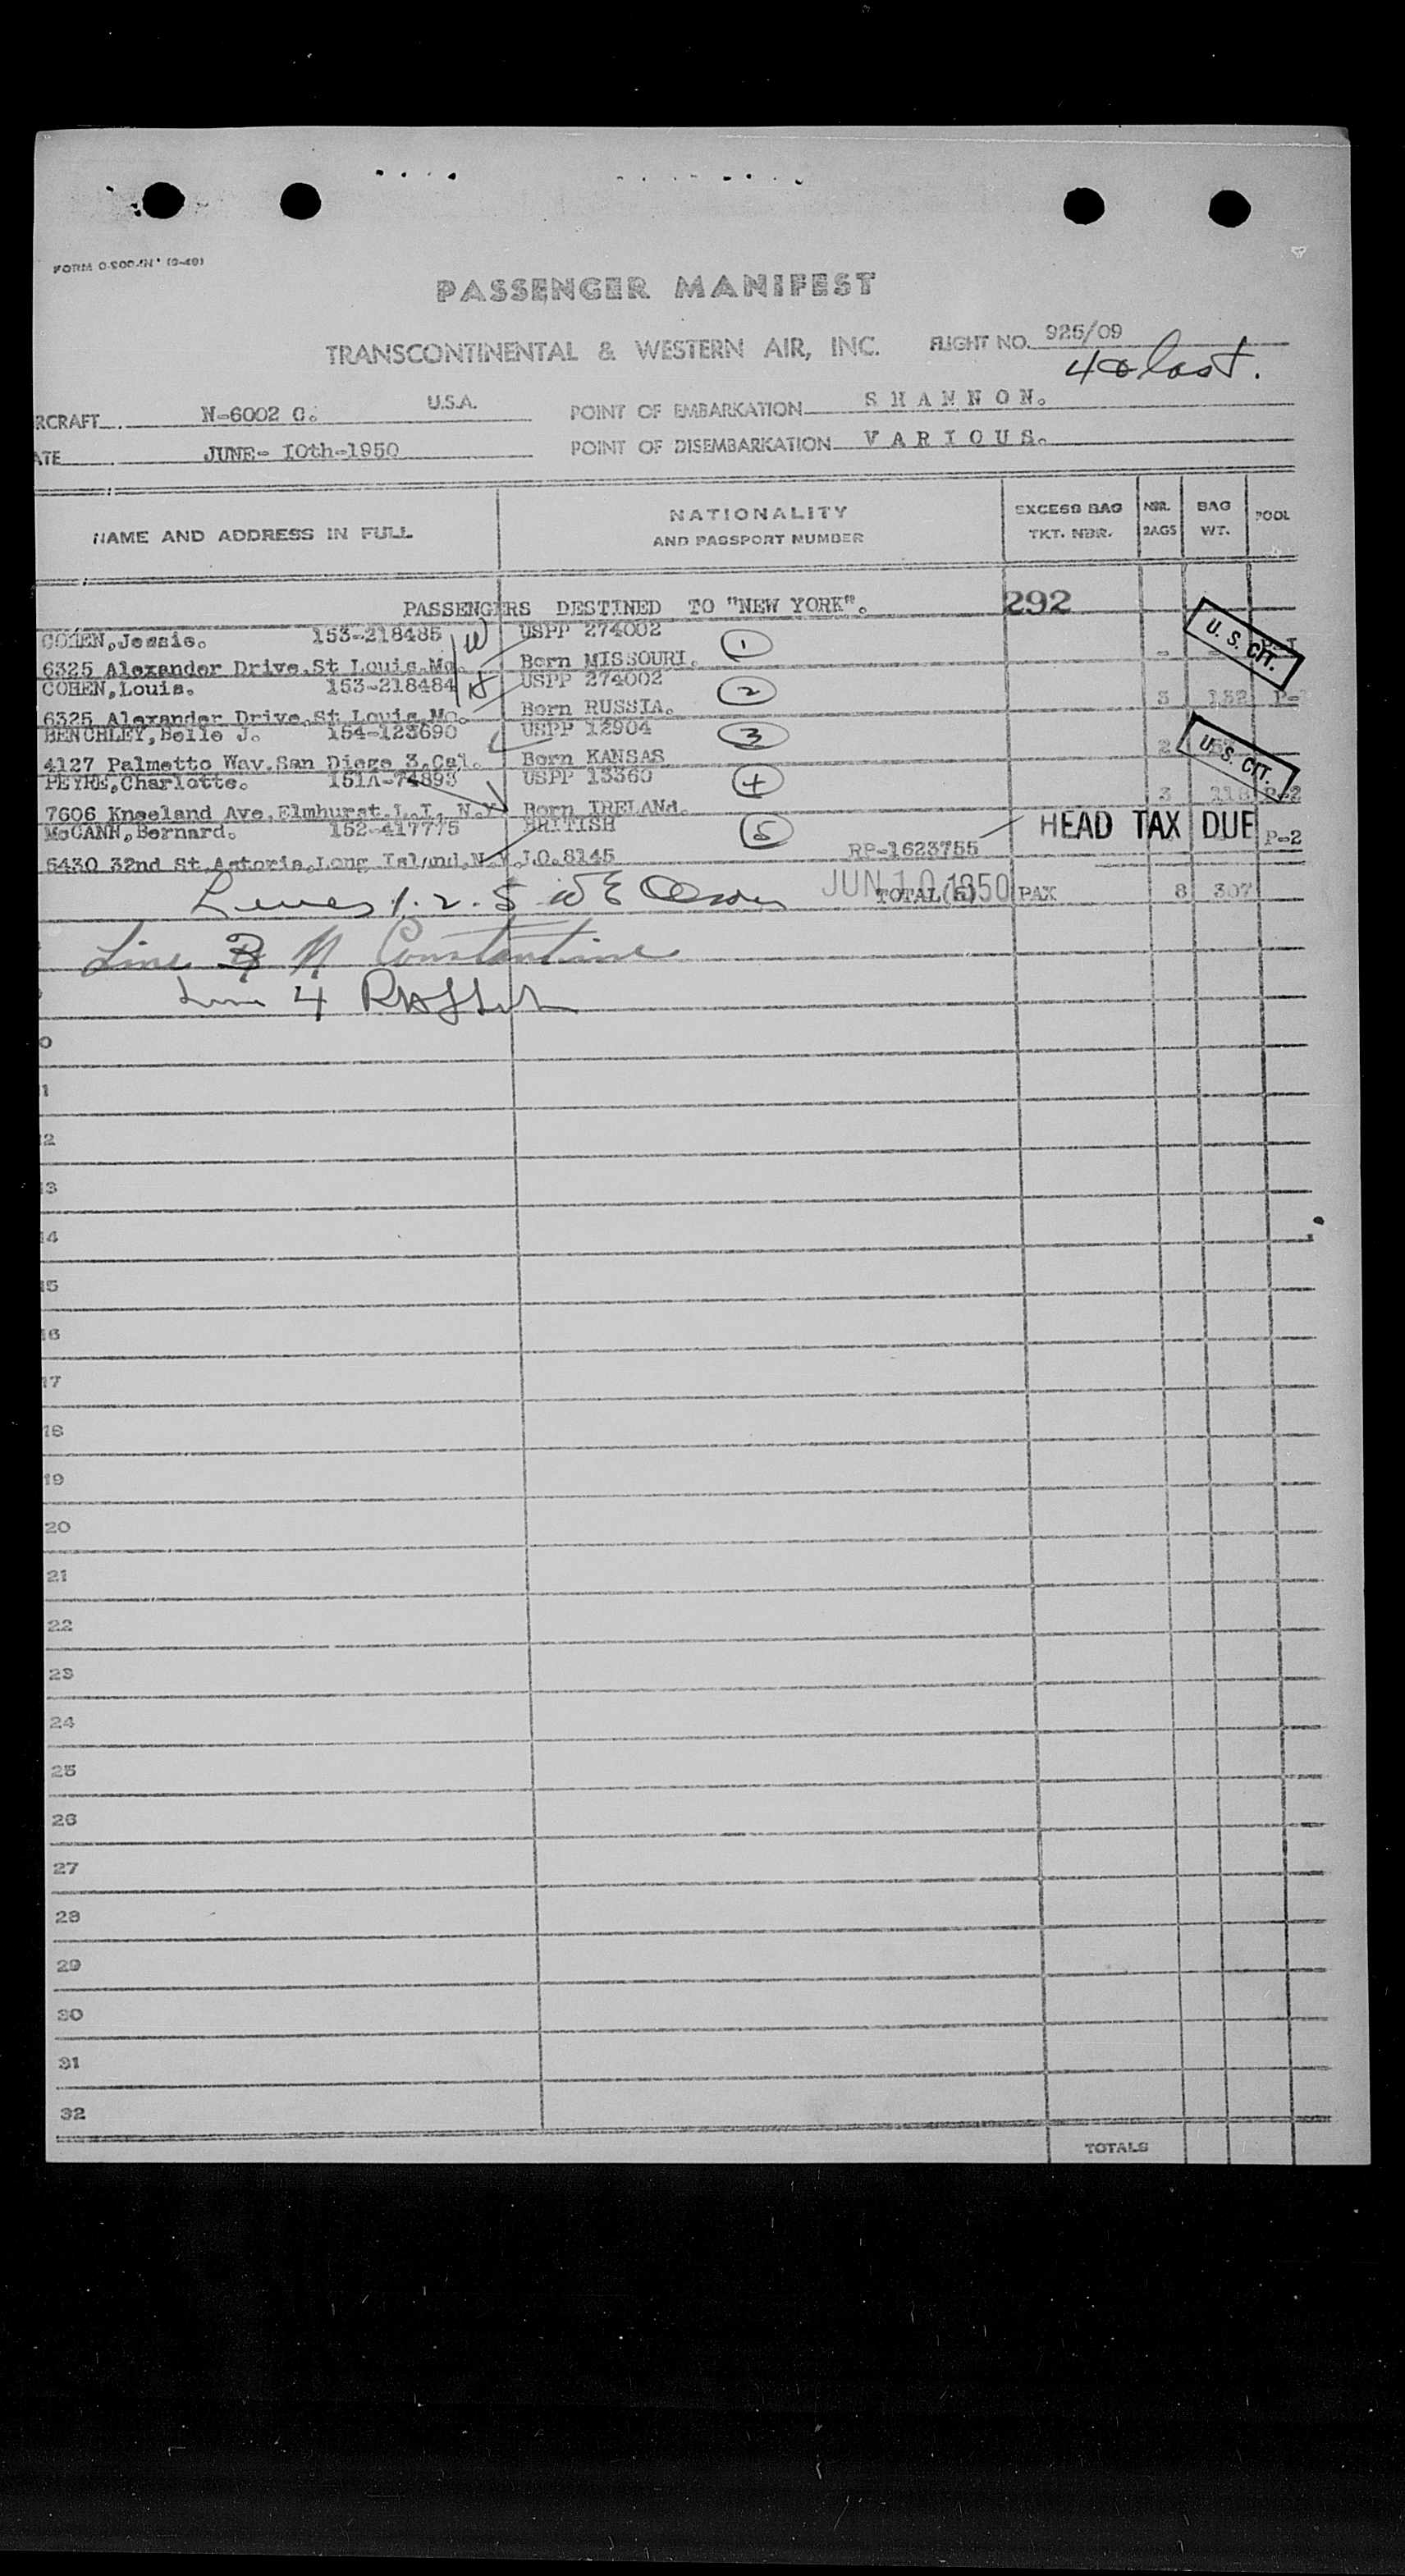 PASSENGER MANIFEST
TRANSCONTINENTAL & WESTERN AIR, INC. FLIGHT NO. 925/09
last.
RCRAFT N-6002 C. U.S.A. POINT OF EMBARKATION S H A N N O N.
ATE JUNE- IOth-1950 POINT OF DISEMBARKATION V A R I O U S.
NAME AND ADDRESS IN FULL NATIONALITY AND PASSPORT NUMBER EXCESS BAG TKT. NBR. NBR. BAGS BAG WT. POOL
PASSENGERS DESTINED TO "NEW YORK". 292
COHEN,Jessie. 153-218485 W USPP 274002 1 U. S. CIT.
6325 Alexander Drive,St Louis,Mo. Born MISSOURI. -
COHEN,Louis. 153-218484 H USPP 274002 2
6325 Alexander Drive,St Louis,Mo. Born RUSSIA. 3 152
BENCHLEY,Belle J. 154-123690 USPP 12904 3 U. S. CIT.
4127 Palmetto Way,San Diego 3,Cal. Born KANSAS 2
PEYRE,Charlotte. 151A-74893 USPP 13360 4
7606 Kneeland Ave,Elmhurst,L.I. N.Y. Born IRELANd. 3 P-2
McCANN,Bernard. 152-417775 BRITISH 5 HEAD TAX DUE P-2
6430 32nd St,Astoria,Long Island,N.Y. I.O.8145 RP-1623755
Lines 1. 2. 5 JUN 10 1950 TOTAL(5) PAX 8 307
Line 3 N Constantine
Line 4
0
1
12
13
14
15
16
17
18
19
20
21
22
23
24
25
26
27
28
29
30
31
32
TOTALS